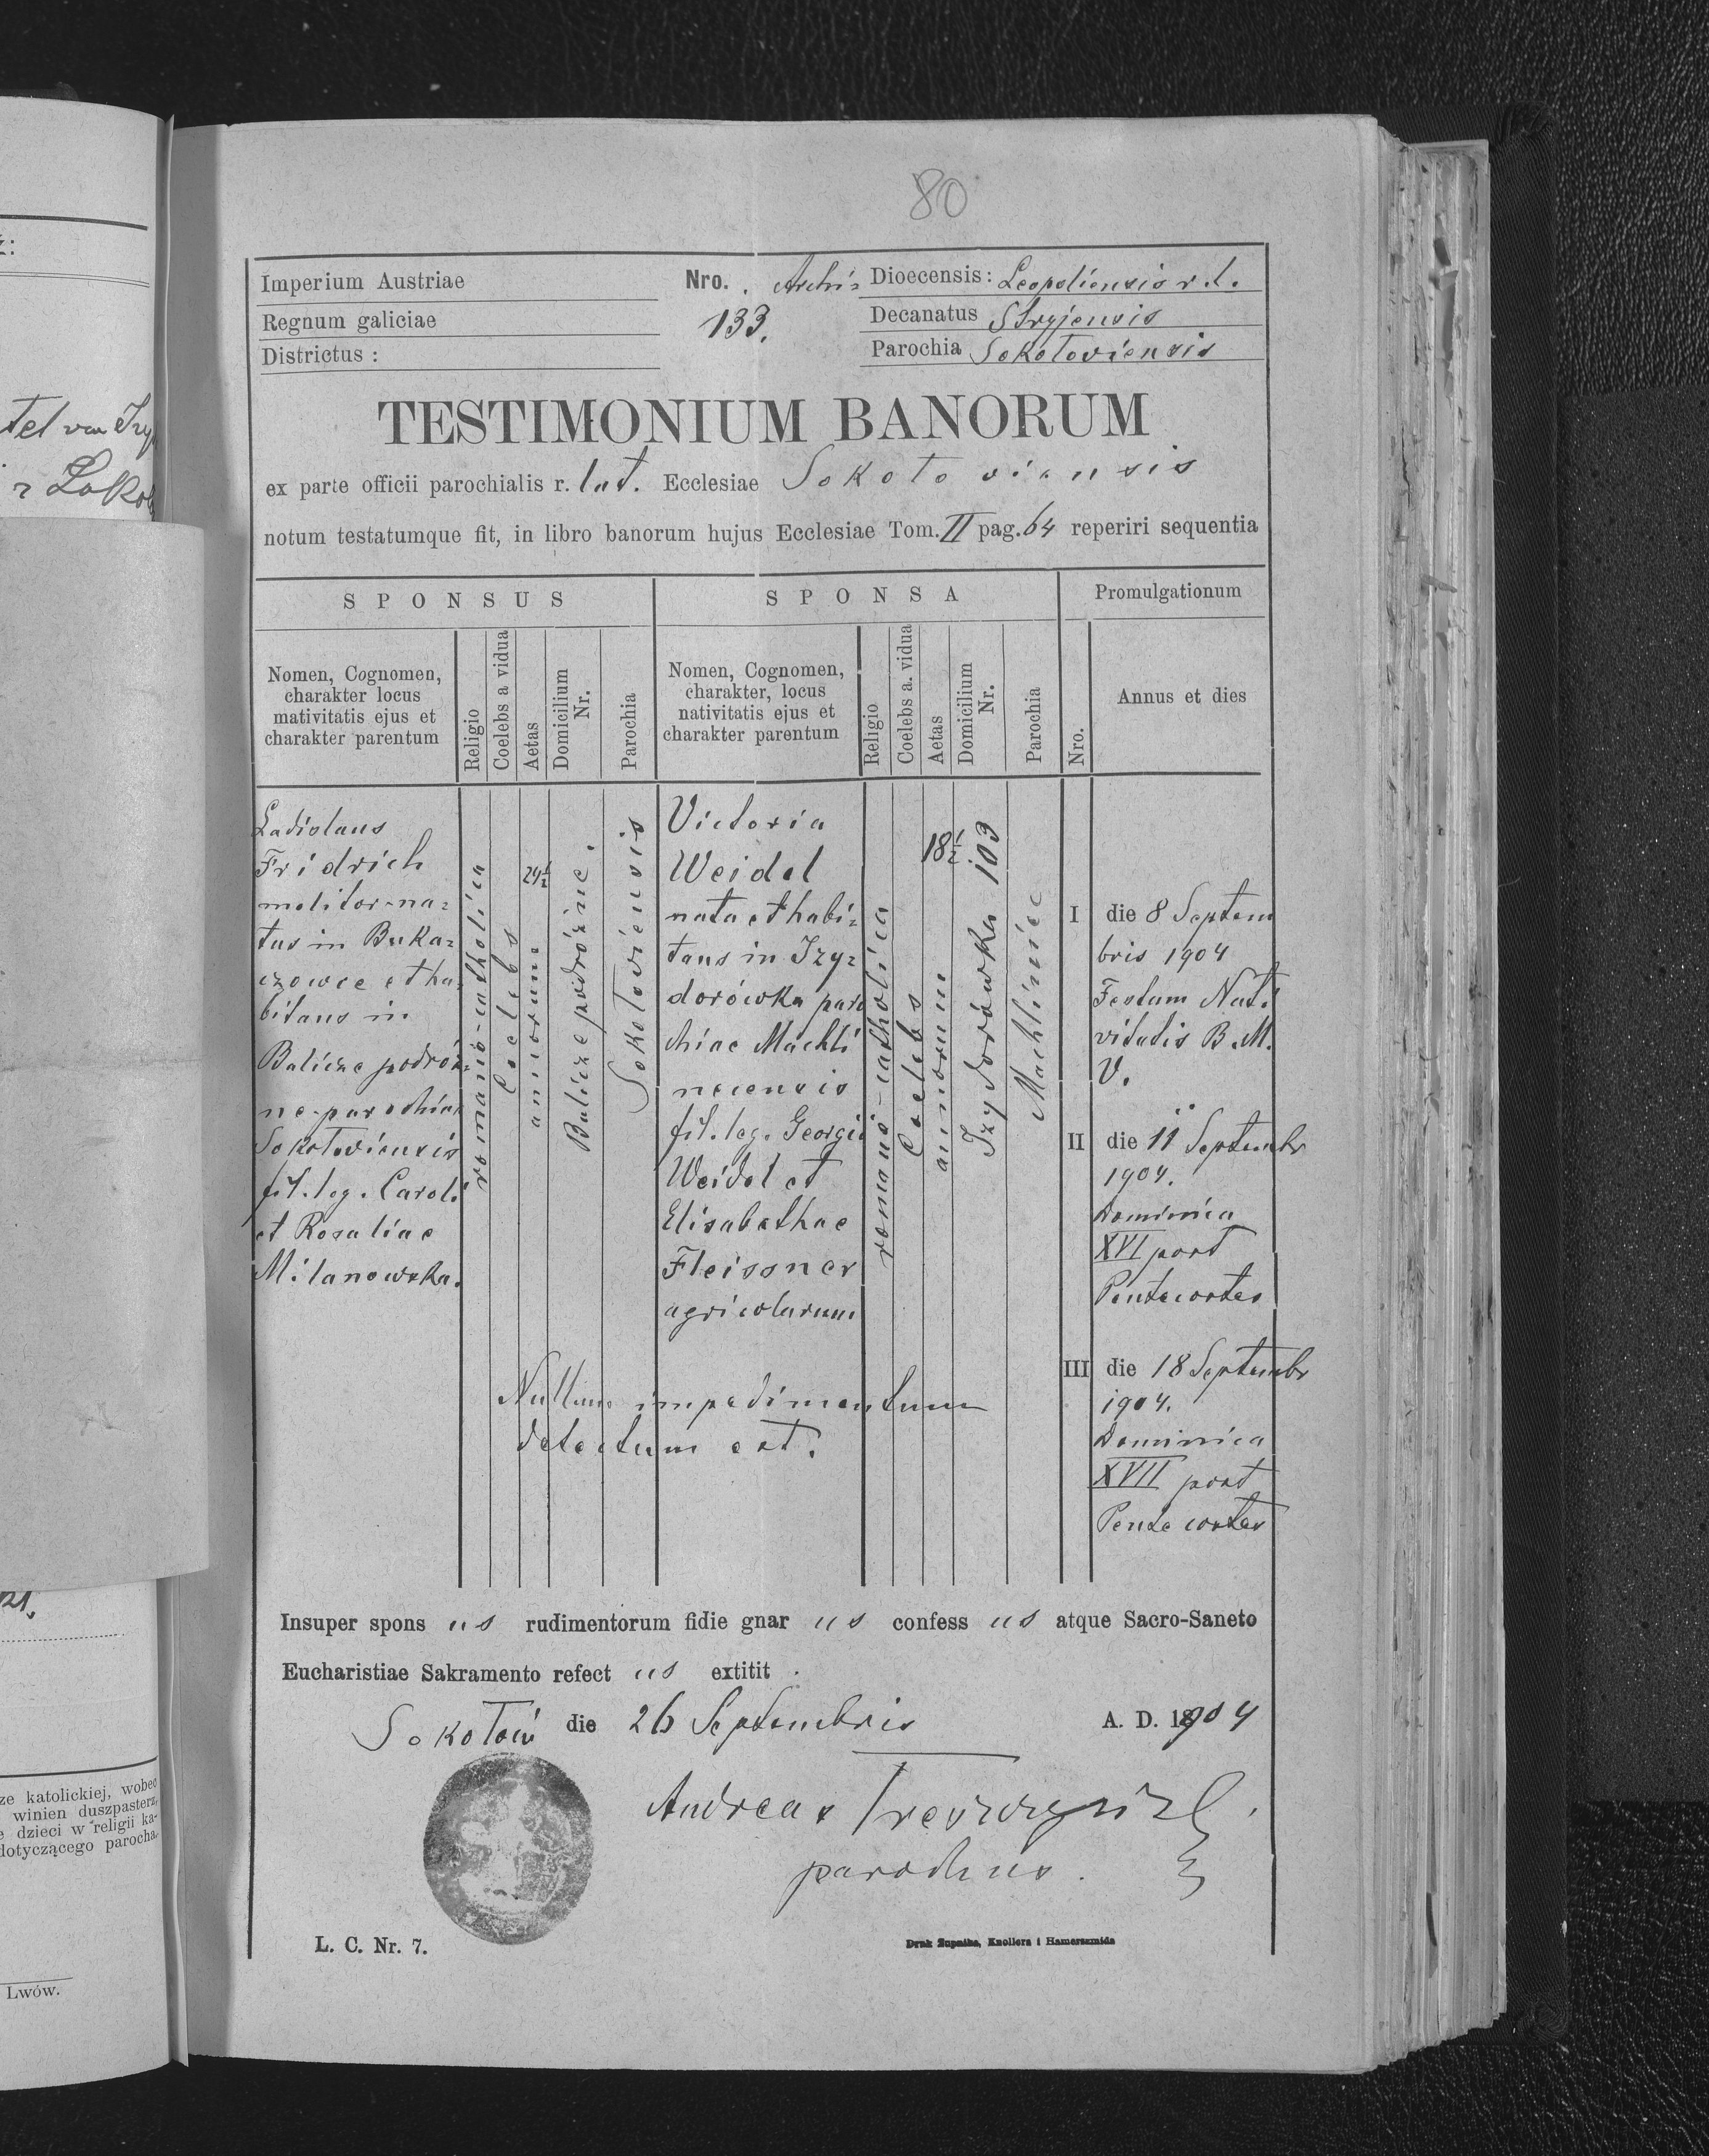 80
Imperium Austriae
Regnum galiciae
Districtus :
Nro. . Archi=
133.
Dioecensis: Leopoliensis r. l.
Decanatus Stryjensis
Parochia Sokołoviensis
TESTIMONIUM BANORUM
ex parte officii parochialis r. lat. Ecclesiae Sokołoviensis
notum testatumque fit, in libro banorum hujus Ecclesiae Tom. II pag. 64 reperiri sequentia
SPONSUS
Nomen, Cognomen,
charakter locus
mativitatis ejus et
charakter parentum
Religio
Coelebs a vidua
Aetas
Domicilium
Nr.
Parochia
Ladislaus
Fridrich
molitor-na=
tus in Buka=
czowce et ha=
bitans in
Balicze podróż=
ne-parochiae
Sokołoviensis
fil. leg. Caroli
et Rosaliae
Milanowska.
romano-catholica
Coelebs
24½
annorum
Balicze podróżne.
Sokołoviensis
SPONSA
Nomen, Cognomen,
charakter, locus
nativitatis ejus et
charakter parentum
Religio
Coelebs a. vidua
Aetas
Domicilium
Nr.
Parochia
Victoria
Weidel
nata et habi=
tans in Izy=
dorówka paro
chiae Machli
neiensis
fil. leg. Georgii
Weidel et
Elisabethae
Fleissner
agricolarum
romano-catholica
Coelebs
18½
annorum
Izydorówka 103
Machliniec
Nullum impedimentum
detectum est.
Promulgationum
Nro.
Annus et dies
I die 8 Septem
bris 1904
Festum Nati
vitatis B. M.
V.
II die 11 Septembr
1904.
Dominica
XVI post
Pentecostes
III die 18 Septembr
1904.
Dominica
XVII post
Pentecostes
Insuper spons us rudimentorum fidie gnar us confess us atque Sacro-Saneto
Eucharistiae Sakramento refect us extitit .
Sokołów die 26 Septembris A. D. 1904
Andreas
parochus.
L. C. Nr. 7.
Druk Zupnika, Knollera i Hamerszmida
ż:
ze katolickiej, wobec
winien duszpasterz,
e dzieci w religii ka-
dotyczącego parocha-
Lwów.